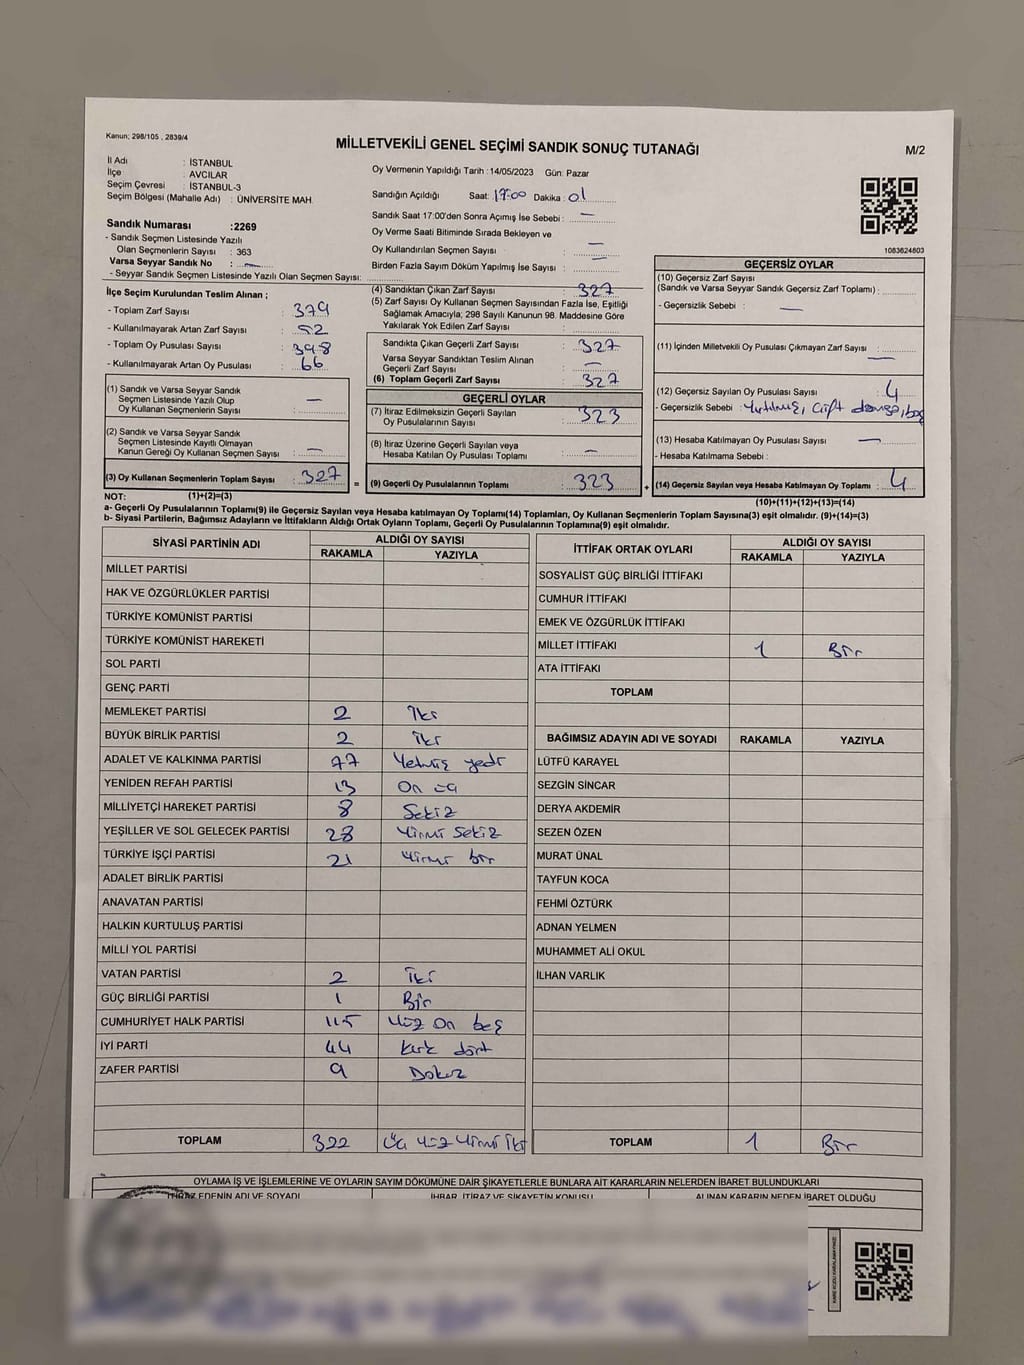 Kanun; 298/105 , 2839/4
MİLLETVEKİLİ GENEL SEÇİMİ SANDIK SONUÇ TUTANAĞI
M/2
İl Adı : İSTANBUL
İlçe : AVCILAR
Seçim Çevresi : İSTANBUL-3
Seçim Bölgesi (Mahalle Adı) : ÜNİVERSİTE MAH.
Oy Vermenin Yapıldığı Tarih : 14/05/2023 Gün: Pazar
Sandığın Açıldığı Saat: 17:00 Dakika: 01
Sandık Saat 17:00'den Sonra Açılmış İse Sebebi : —
Oy Verme Saati Bitiminde Sırada Bekleyen ve
Oy Kullandırılan Seçmen Sayısı : —
Birden Fazla Sayım Döküm Yapılmış İse Sayısı : —
1083624803
Sandık Numarası :2269
- Sandık Seçmen Listesinde Yazılı
Olan Seçmenlerin Sayısı : 363
Varsa Seyyar Sandık No : —
- Seyyar Sandık Seçmen Listesinde Yazılı Olan Seçmen Sayısı:
İlçe Seçim Kurulundan Teslim Alınan ;
- Toplam Zarf Sayısı : 379
- Kullanılmayarak Artan Zarf Sayısı : 52
- Toplam Oy Pusulası Sayısı : 398
- Kullanılmayarak Artan Oy Pusulası : 66
(1) Sandık ve Varsa Seyyar Sandık
Seçmen Listesinde Yazılı Olup
Oy Kullanan Seçmenlerin Sayısı : —
(2) Sandık ve Varsa Seyyar Sandık
Seçmen Listesinde Kayıtlı Olmayan
Kanun Gereği Oy Kullanan Seçmen Sayısı : —
(3) Oy Kullanan Seçmenlerin Toplam Sayısı : 327 =
(1)+(2)=(3)
(4) Sandıktan Çıkan Zarf Sayısı : 327
(5) Zarf Sayısı Oy Kullanan Seçmen Sayısından Fazla İse, Eşitliği
Sağlamak Amacıyla; 298 Sayılı Kanunun 98. Maddesine Göre
Yakılarak Yok Edilen Zarf Sayısı :
Sandıkta Çıkan Geçerli Zarf Sayısı : 327
Varsa Seyyar Sandıktan Teslim Alınan
Geçerli Zarf Sayısı : —
(6) Toplam Geçerli Zarf Sayısı : 327
GEÇERLİ OYLAR
(7) İtiraz Edilmeksizin Geçerli Sayılan
Oy Pusulalarının Sayısı : 323
(8) İtiraz Üzerine Geçerli Sayılan veya
Hesaba Katılan Oy Pusulası Toplamı : —
(9) Geçerli Oy Pusulalarının Toplamı : 323 +
GEÇERSİZ OYLAR
(10) Geçersiz Zarf Sayısı
(Sandık ve Varsa Seyyar Sandık Geçersiz Zarf Toplamı) :
- Geçersizlik Sebebi : —
(11) İçinden Milletvekili Oy Pusulası Çıkmayan Zarf Sayısı : —
(12) Geçersiz Sayılan Oy Pusulası Sayısı : 4
- Geçersizlik Sebebi : Yırtılmış, Çift damga, boş
(13) Hesaba Katılmayan Oy Pusulası Sayısı : —
- Hesaba Katılmama Sebebi :
(14) Geçersiz Sayılan veya Hesaba Katılmayan Oy Toplamı : 4
(10)+(11)+(12)+(13)=(14)
NOT:
a- Geçerli Oy Pusulalarının Toplamı(9) ile Geçersiz Sayılan veya Hesaba katılmayan Oy Toplamı(14) Toplamları, Oy Kullanan Seçmenlerin Toplam Sayısına(3) eşit olmalıdır. (9)+(14)=(3)
b- Siyasi Partilerin, Bağımsız Adayların ve İttifakların Aldığı Ortak Oyların Toplamı, Geçerli Oy Pusulalarının Toplamına(9) eşit olmalıdır.
SİYASİ PARTİNİN ADI ALDIĞI OY SAYISI
RAKAMLA YAZIYLA
MİLLET PARTİSİ
HAK VE ÖZGÜRLÜKLER PARTİSİ
TÜRKİYE KOMÜNİST PARTİSİ
TÜRKİYE KOMÜNİST HAREKETİ
SOL PARTİ
GENÇ PARTİ
MEMLEKET PARTİSİ 2 İki
BÜYÜK BİRLİK PARTİSİ 2 İki
ADALET VE KALKINMA PARTİSİ 77 Yetmiş yedi
YENİDEN REFAH PARTİSİ 13 On üç
MİLLİYETÇİ HAREKET PARTİSİ 8 Sekiz
YEŞİLLER VE SOL GELECEK PARTİSİ 28 Yirmi Sekiz
TÜRKİYE İŞÇİ PARTİSİ 21 Yirmi bir
ADALET BİRLİK PARTİSİ
ANAVATAN PARTİSİ
HALKIN KURTULUŞ PARTİSİ
MİLLİ YOL PARTİSİ
VATAN PARTİSİ 2 İki
GÜÇ BİRLİĞİ PARTİSİ 1 Bir
CUMHURİYET HALK PARTİSİ 115 Yüz On beş
İYİ PARTİ 44 Kırk dört
ZAFER PARTİSİ 9 Dokuz
TOPLAM 322 Üç Yüz Yirmi İki
İTTİFAK ORTAK OYLARI ALDIĞI OY SAYISI
RAKAMLA YAZIYLA
SOSYALİST GÜÇ BİRLİĞİ İTTİFAKI
CUMHUR İTTİFAKI
EMEK VE ÖZGÜRLÜK İTTİFAKI
MİLLET İTTİFAKI 1 Bir
ATA İTTİFAKI
TOPLAM
BAĞIMSIZ ADAYIN ADI VE SOYADI RAKAMLA YAZIYLA
LÜTFÜ KARAYEL
SEZGİN SİNCAR
DERYA AKDEMİR
SEZEN ÖZEN
MURAT ÜNAL
TAYFUN KOCA
FEHMİ ÖZTÜRK
ADNAN YELMEN
MUHAMMET ALİ OKUL
İLHAN VARLIK
TOPLAM 1 Bir
OYLAMA İŞ VE İŞLEMLERİNE VE OYLARIN SAYIM DÖKÜMÜNE DAİR ŞİKAYETLERLE BUNLARA AİT KARARLARIN NELERDEN İBARET BULUNDUKLARI
İTİRAZ EDENİN ADI VE SOYADI İHBAR, İTİRAZ VE ŞİKAYETİN KONUSU ALINAN KARARIN NEDEN İBARET OLDUĞU
KARE KODU KARALAMAYINIZ!